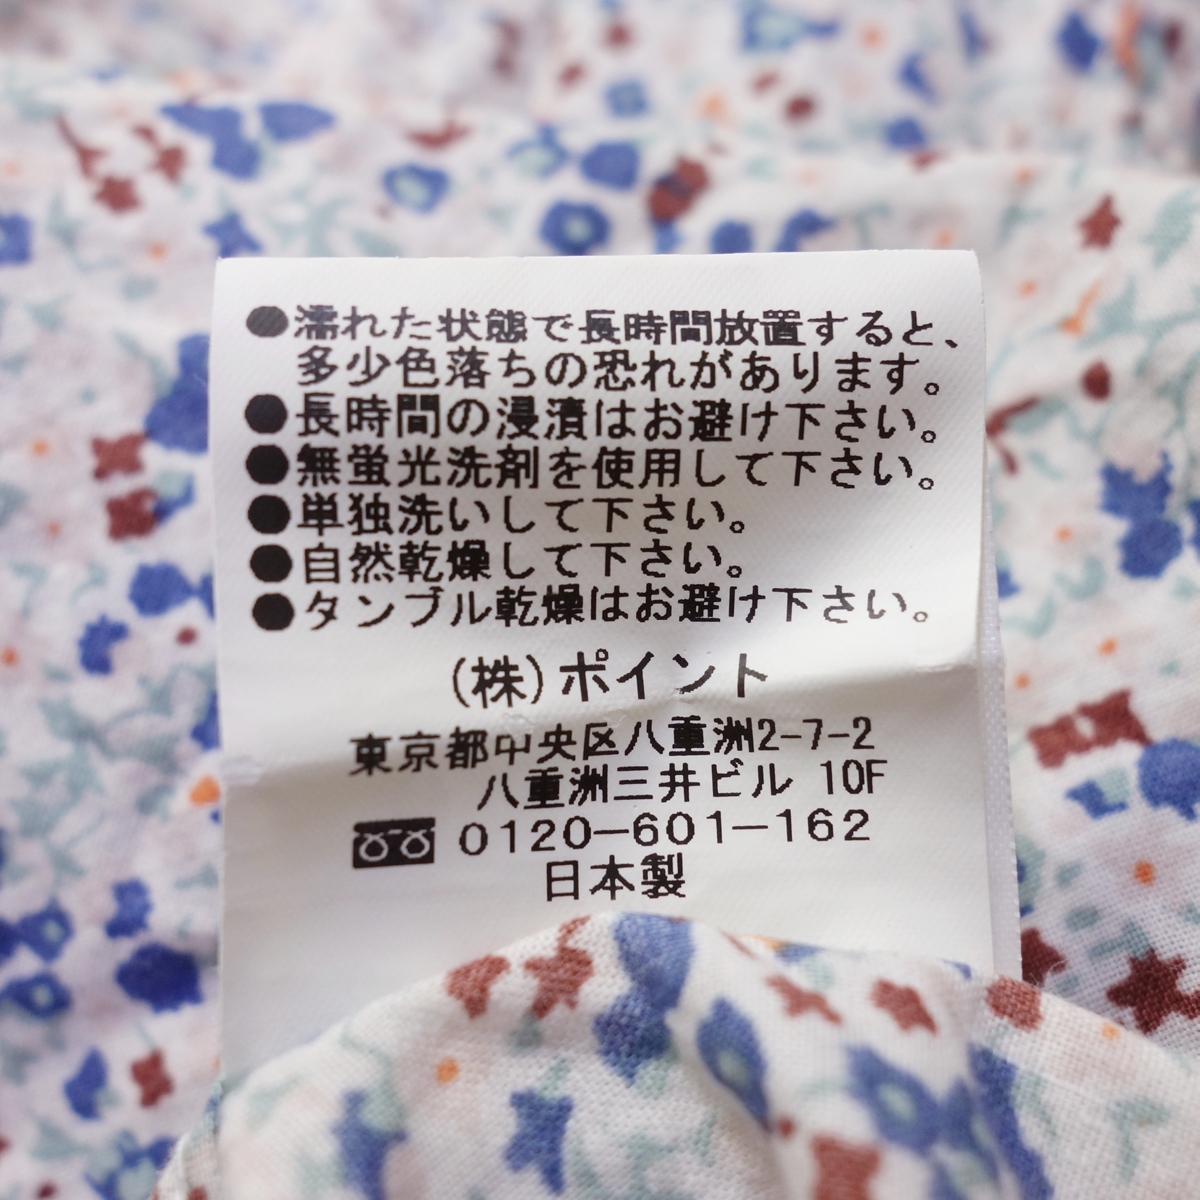 ●濡れた状態で長時間放置すると、
多少色落ちの恐れがあります。
●長時間の浸漬はお避け下さい。
●無蛍光洗剤を使用して下さい。
●単独洗いして下さい。
●自然乾燥して下さい。
●タンブル乾燥はお避け下さい。
(株)ポイント
東京都中央区八重洲2-7-2
八重洲三井ビル 10F
0120-601-162
日本製